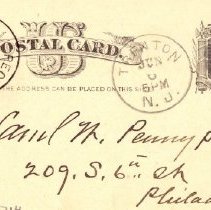 POSTAL CARD
TRENTON
JUN
6PM
N. J.
THE ADDRESS CAN BE PLACED ON THIS
Saml W. Pennyp
209. S. 6th St
Philad